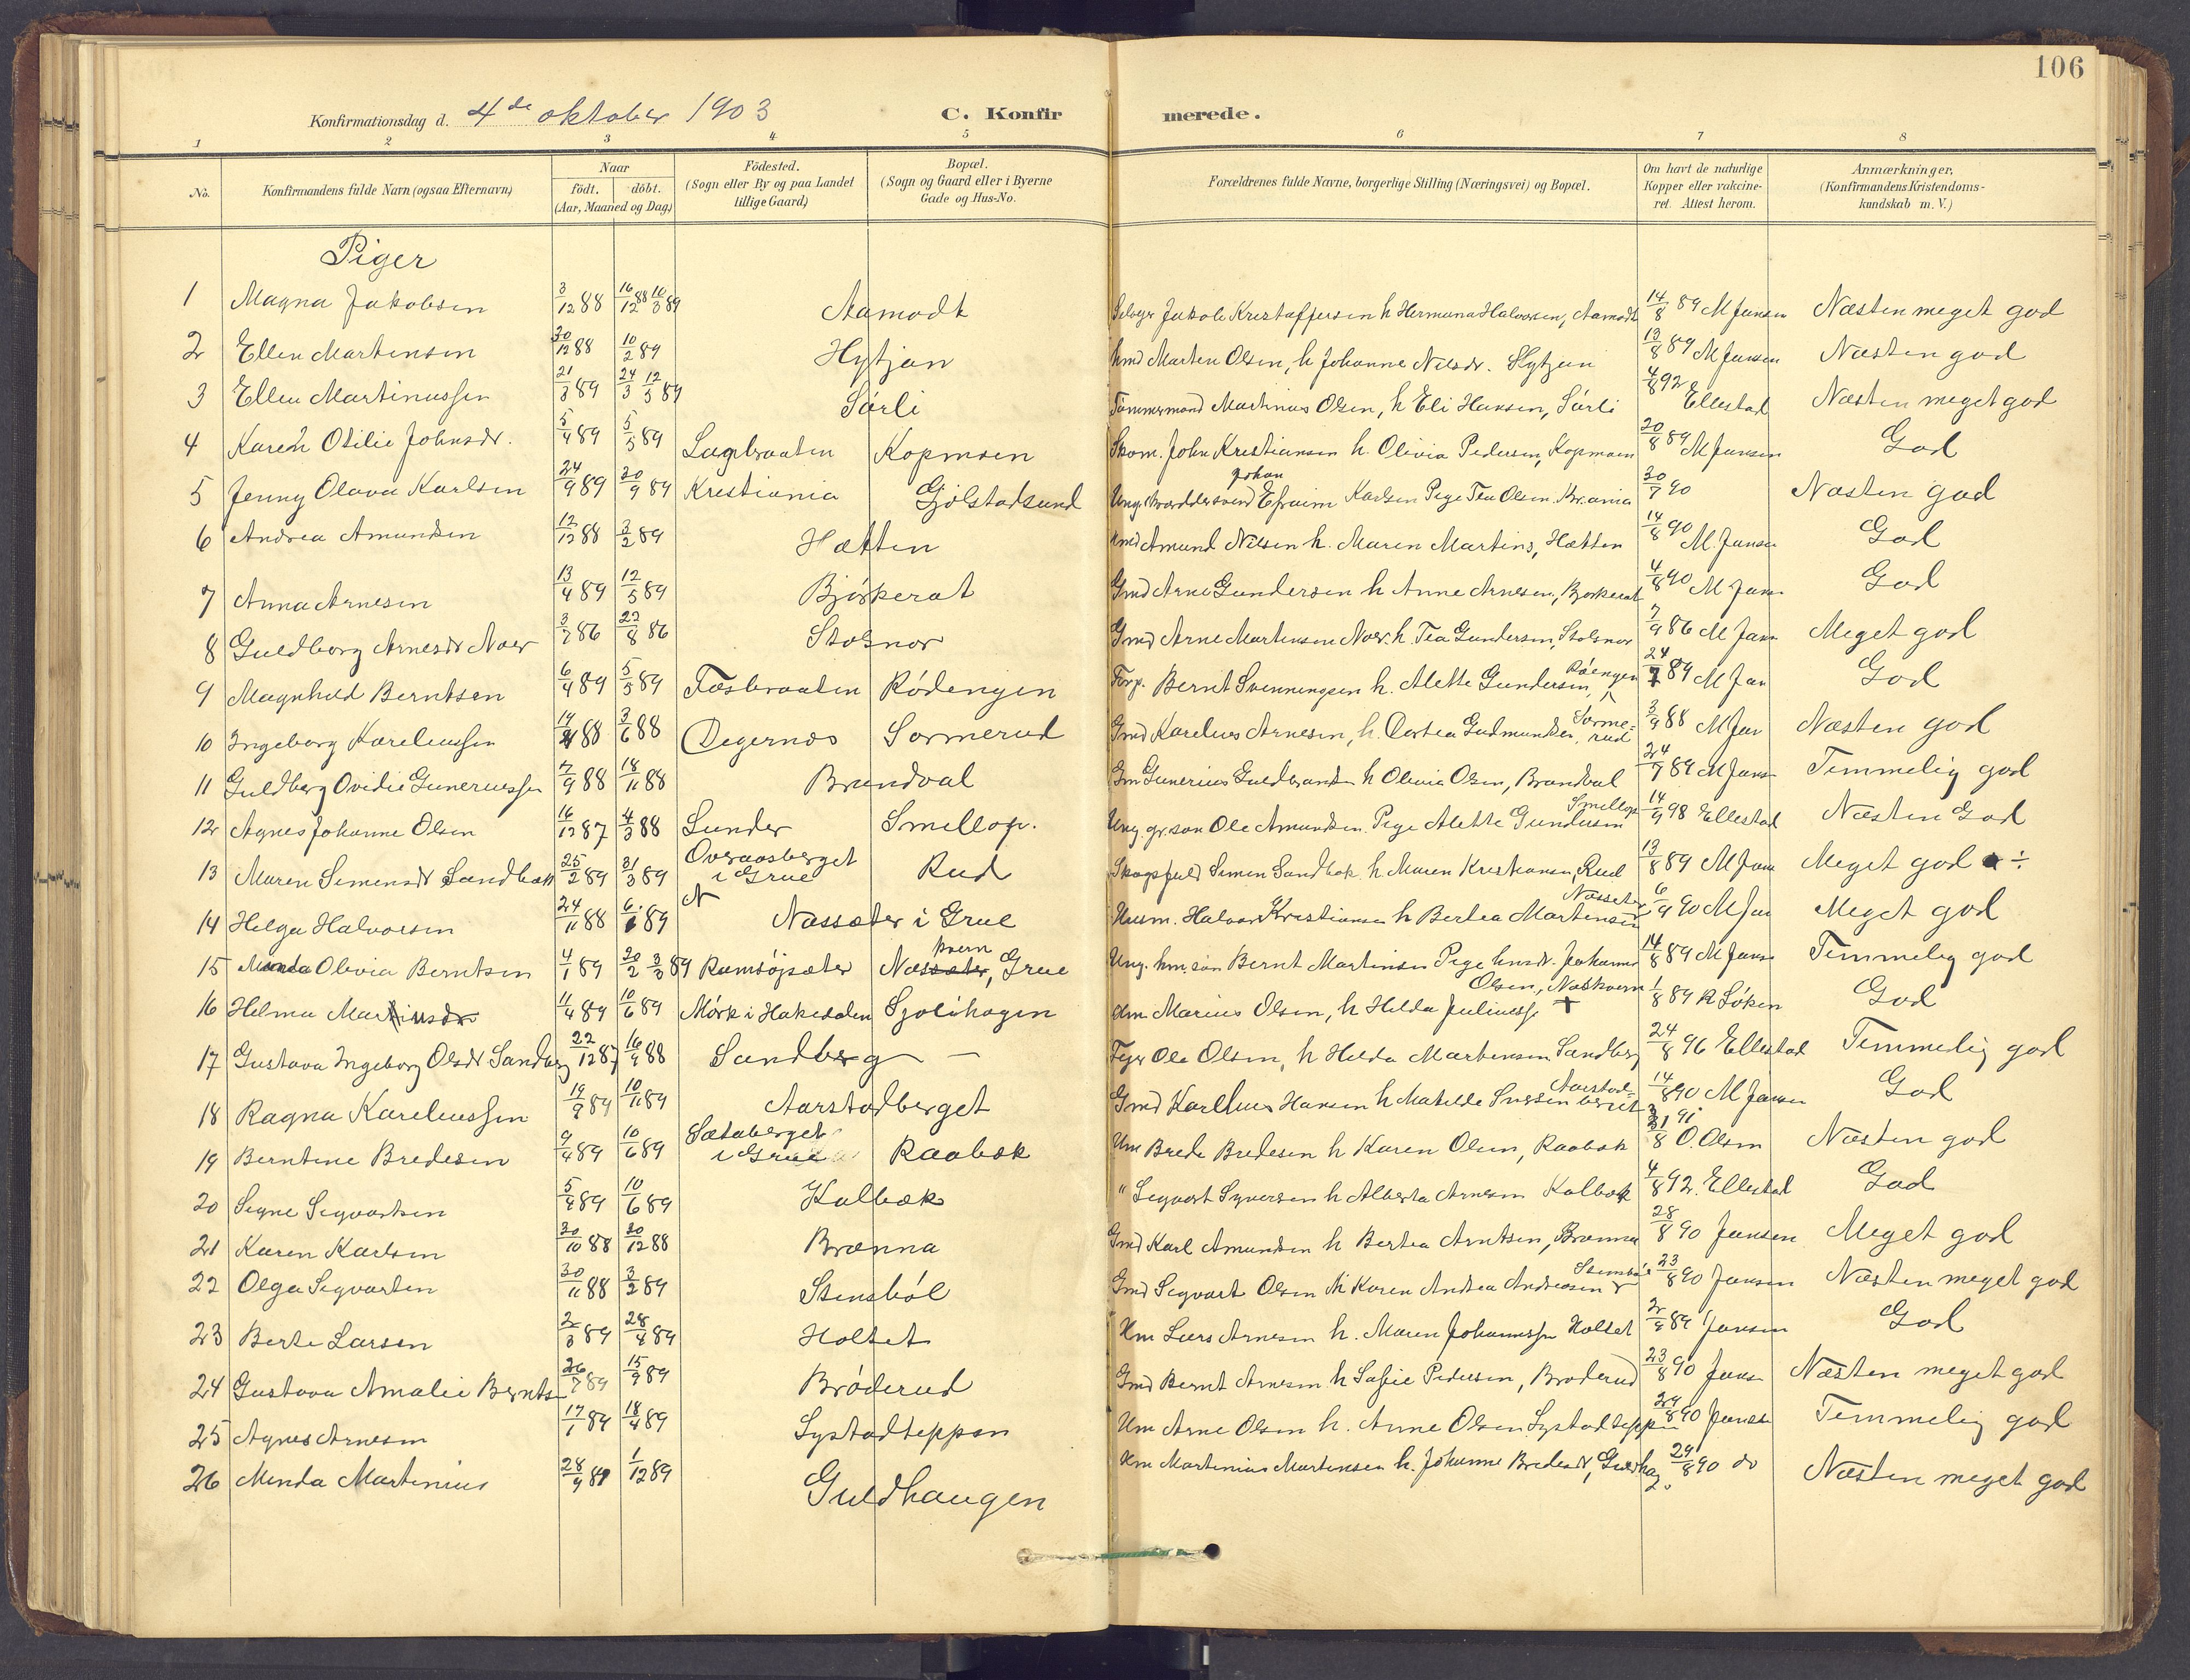 106
Konfirmationsdag d. 4de oktober 1903 C. Konfirmerede.
1 2 3 4 5 6 7 8
No. Konfirmandens fulde Navn (ogsaa Efternavn) Naar födt. döbt. (Aar, Maaned og Dag) Födested. (Sogn eller By og paa Landet tillige Gaard) Bopæl. (Sogn og Gaard eller i Byerne Gade og Hus-No. Forældrenes fulde Navne, borgerlige Stilling (Næringsvei) og Bopæl. Om havt de naturlige Kopper eller vakcineret. Attest herom. Anmærkninger, (Konfirmandens Kristendomskundskab m. V.)
Piger
1 Magna Jakobsen 3/12 88 16/12 88 10/3 89 Aamodt Jakob Kristoffersen h Hermana Halvorsen, Aamodt 14/8 89 M Jansen Næsten meget god
2 Ellen Martensen 30/12 88 10/2 89 Hytjan Marten Olsen, h Johanne Nilsdr. Hytjan 13/8 89 M Jansen Næsten god
3 Ellen Martinussen 21/3 89 24/3 12/5 89 Sørli Tømmermand Martinus Olsen, h Eli Hansen, Sørli 4/8 92 Ellestad Næsten meget god
4 Karen Otilie Johnsdr. 5/4 89 5/5 89 Lagbraaten Kopmoen Skom. John Kristiansen h. Olivia Pedersen, Kopmoen 20/8 89 M Jansen God
5 Jenny Olava Karlsen 24/9 89 30/9 89 Kristiania Gjølstadsund Ung. skræddersvend Johan Efraim Karlsen Pige Tea Olsen. Kr.ania 30/7 90 Næsten god
6 Andrea Amundsen 12/12 88 3/2 89 Hætten Amund Nilsen h. Maren Martins, Hætten 14/8 90 M. Jansen God
7 Anna Arnesen 13/4 89 12/5 89 Bjørkerat Gmd Arne Gundersen h Anne Arnesen, Bjørkerat 4/8 90 M Jans God
8 Guldborg Arnesdr Noer 3/7 86 22/8 86 Stolsnor Gmd Arne Martinsen Noer. h. Tea Gundersen, Stolsnor 7/9 86 M Jans Meget god
9 Magnhild Berntsen 6/4 89 5/5 89 Fæsbraaten Rødengen Forp. Bernt Svenningsen h. Alette Gundersen, Røengen 24/7 89 M Jan God
10 Ingeborg Kareliussen 14/4 88 3/6 88 Degernes Sormerud Gmd Karelius Arnesen, h. Dortea Gudmundsen, Sormerud 3/9 88 M Jan Næsten god
11 Guldborg Ovidie Gunerussen 7/9 88 18/11 88 Brandval Gm Gunerius Guldbrandsen h Olivia Olsen, Brandval 24/7 89 M Jans Temmelig god
12 Agnes Johanne Olsen 16/12 87 4/3 88 Lunder Smellop. Ung. gr.søn Ole Amundsen. Pige Alette Gundersen Smellop 14/9 98 Ellestad Næsten God
13 Maren Simensdr Sandbæk 25/2 89 31/3 89 Overaasberget i Grue Rud Skogsfuld Simen Sandbæk h. Maren Kristiansen, Rud 13/8 89 M Jan Meget god ÷
14 Helga Halvorsen 24/11 88 6/1 89 N Næssæter i Grue Husm. Halvor Kristiansen h Bertea Martensen Næsseter 6/9 90 M Jan Meget god
15 Minda Olivia Berntsen 4/1 89 20/2 3/3 89 Ramsøjsæter Næskvern, Grue Ung. hm.søn Bernt Martinsen Pige hmsdr. Johanne Olsen, Næskvern 14/8 89 M Jans Temmelig god
16 Helma Mariusdr 11/4 89 10/6 89 Mørk i Hakedalen Sjolihagen Hm Marius Olsen, h Hilda Juliusss + 1/8 89 R Løken God
17 Gustava Ingeborg Olsdr Sandberg 22/12 87 16/9 88 Sandberg — Ole Olsen, h Hilda Martensen Sandberg 24/8 96 Ellestad Temmelig god
18 Ragna Kareliussen 19/9 89 10/11 89 Aarstadberget Gmd Karelius Hansen h Matilde Aarstadberget 14/8 90 M Jansen God
19 Berntine Bredesen 9/4 89 10/6 89 Sætaberget i Grue Raabæk Hm Brede Bredesen h Karen Olsen, Raabæk 31/8 91 O. Olsen Næsten god
20 Signe Sigvartsen 5/4 89 10/6 89 Kalbæk " Sigvart Syversen h Alberta Arnesen Kalbæk 4/8 92. Ellestad God
21 Karen Karlsen 20/10 88 30/12 88 Brænna Gmd Karl Amundsen h Bertea Arntsen, Brænna 28/8 90 Jansen Meget god
22 Olga Sigvartsen 30/11 88 3/2 89 Stensbøl Gmd Sigvart Olsen h Karen Andrea Andreasen Stensbøl 23/8 90 Jansen Næsten meget god
23 Berte Larsen 2/3 89 28/4 89 Holtet Hm Lars Arnesen h. Maren Johannessen Holtet 2/9 89 Jansen God
24 Gustava Amalie Bernts 26/7 89 15/9 89 Brøderud Gmd Bernt Arnesen h Sofie Pedersen, Brøderud 23/8 90 Jans Næsten meget god
25 Agnes Arnesen 17/1 89 18/4 89 Lystadteppen Hm Arne Olsen h. Anne Olsen Lystadteppen 29/8 90 Jansen Temmelig god
26 Minda Martinius 28/9 89 1/12 89 Guldhaugen Hm Martinius Martensen h. Johanne Bredesdr, Guldhag 29/8 90 do Næsten meget god